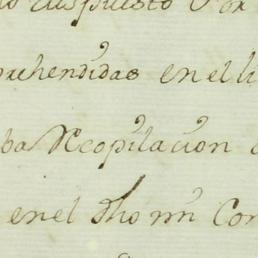 dispuesto por
prehendidas en el li
ba Recopilacion
en el Dho mi Con